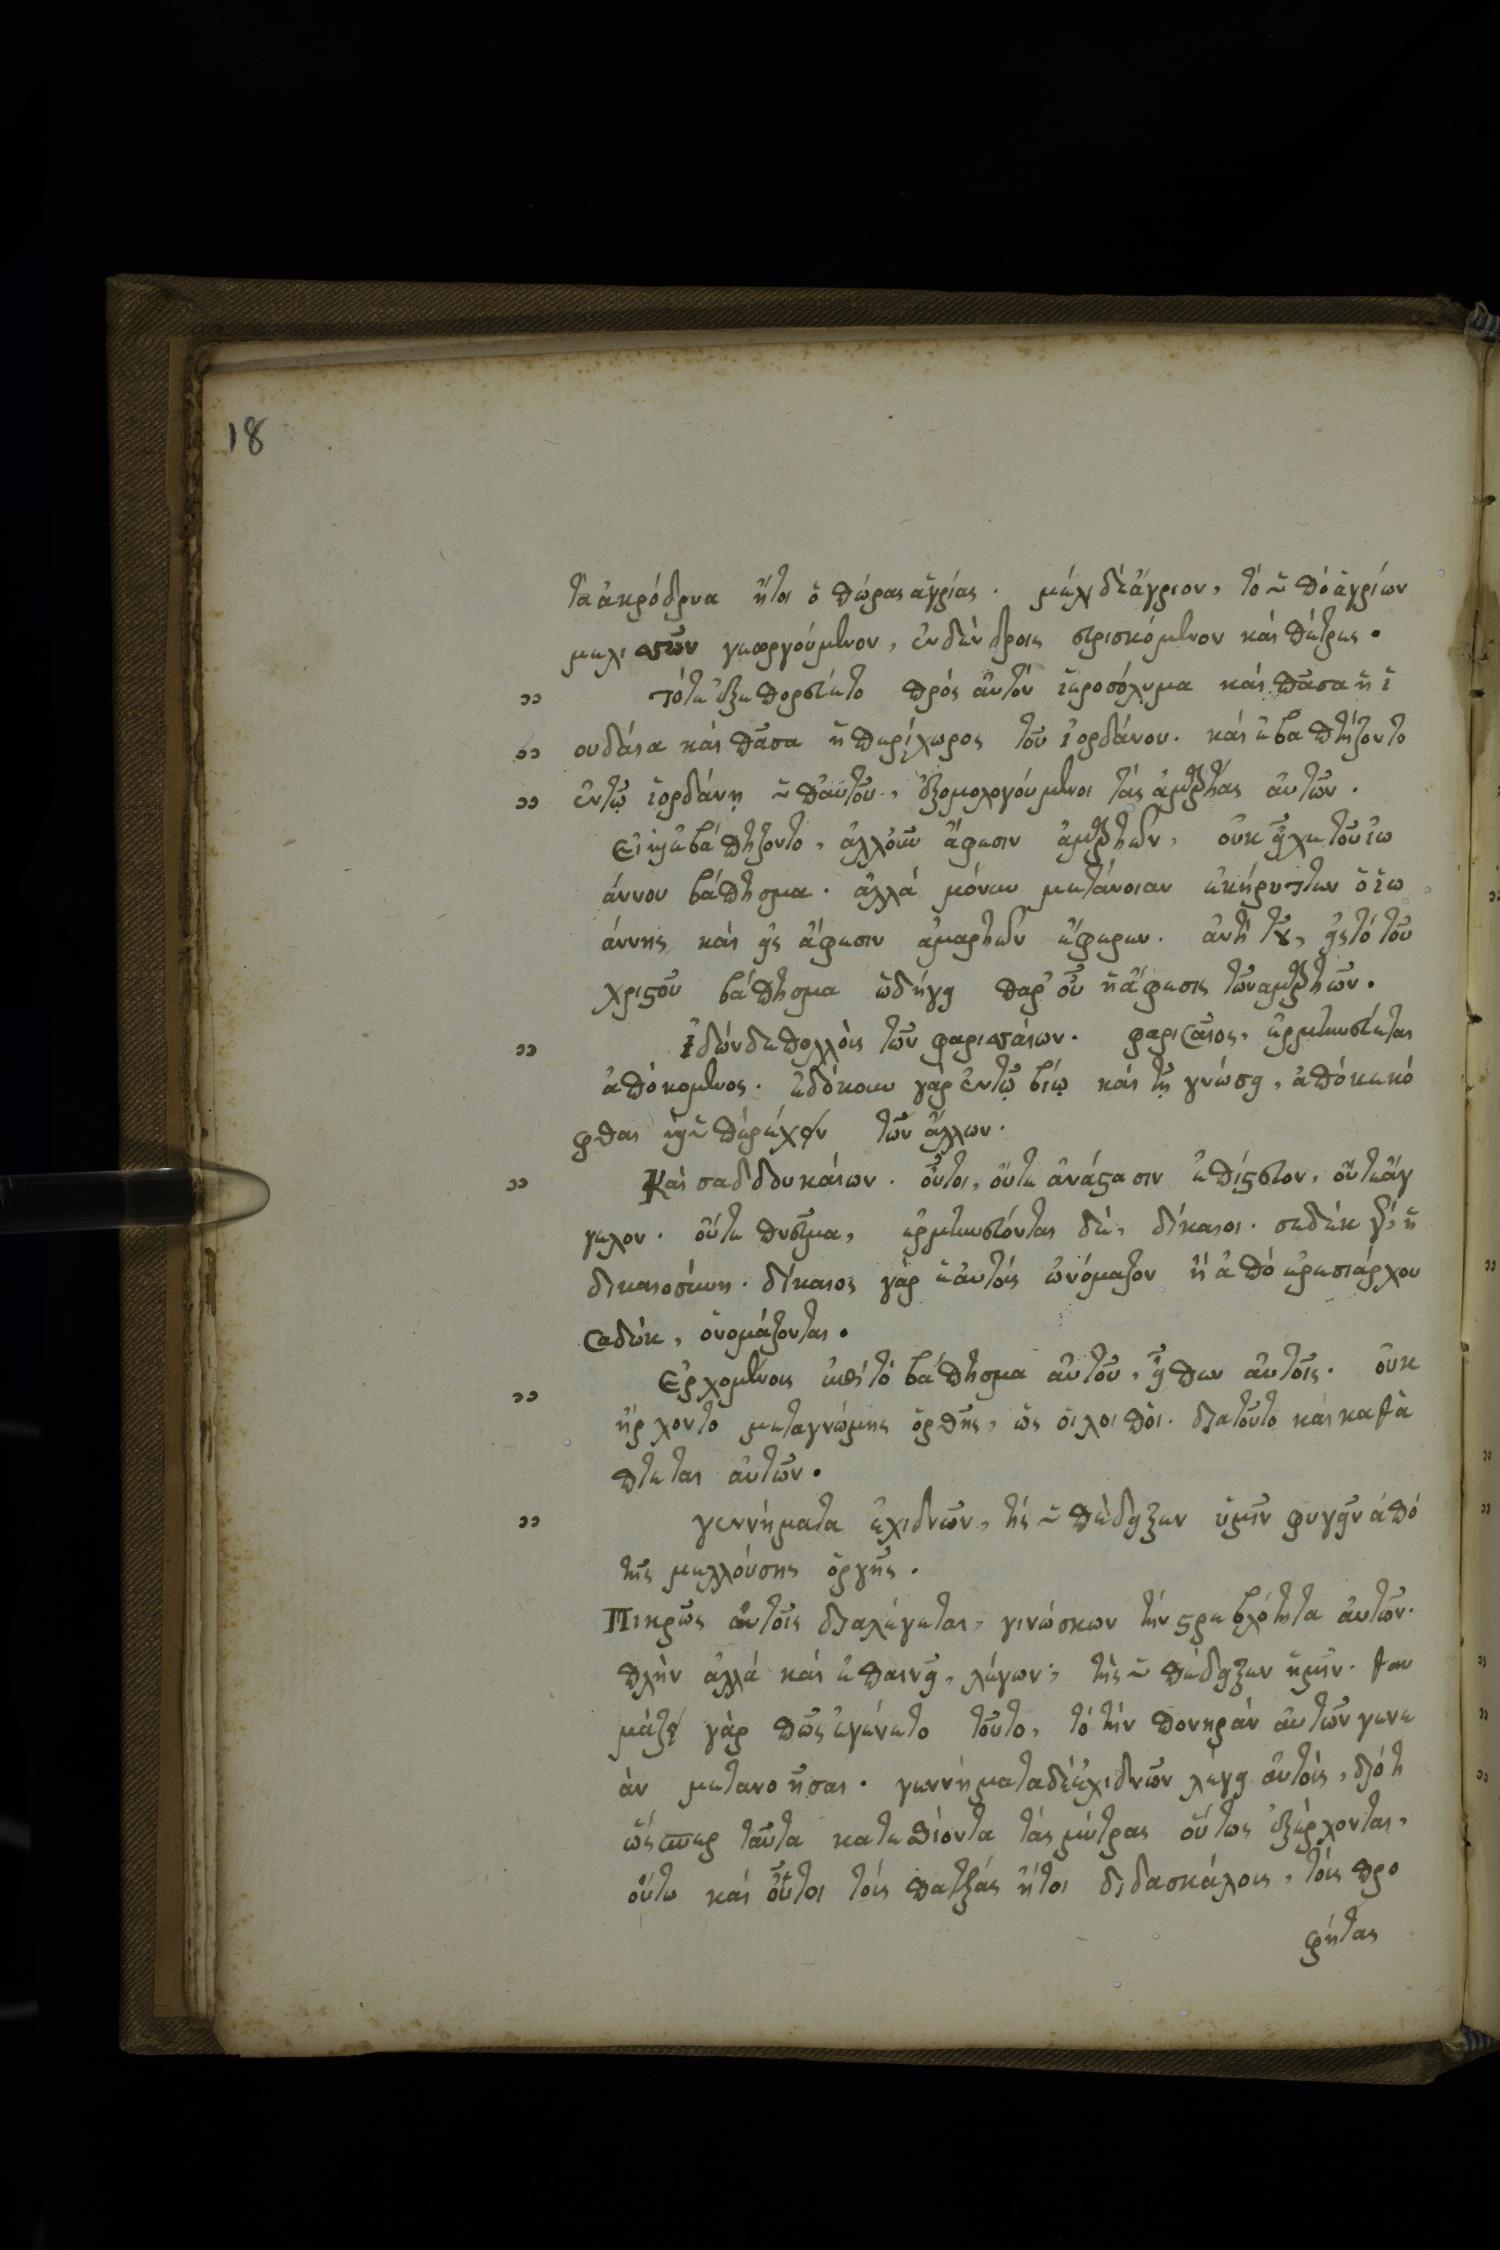 18
τὰ ἀκρόδρυα ἤτοι ὀπώρας ἀγρίας. μέλι δὲ ἄγριον, τὸ ὑπὸ ἀγρίων
μελισσῶν γεωργούμενον, ἐν δένδροις εὑρισκόμενον καὶ πέτραις.
τότε ἐξεπορεύετο πρὸς αὐτὸν ἱεροσόλυμα καὶ πᾶσα ἡ ἰ
ουδαία καὶ πᾶσα ἡ περίχωρος τοῦ ἰορδάνου. καὶ ἐβαπτίζοντο
ἐν τῷ ἰορδάνῃ ὑπ' αὐτοῦ, ἐξομολογούμενοι τὰς ἁμαρτίας αὐτῶν.
Εἰ καὶ ἐβαπτίζοντο, ἀλλ' οὖν ἄφεσιν ἁμαρτιῶν, οὐκ εἶχε τοῦ ἰω
άννου βάπτισμα. ἀλλὰ μόνην μετάνοιαν ἐκήρυττεν ὁ ἰω
άννης καὶ εἰς ἄφεσιν ἁμαρτιῶν ἔφερεν. ἀντὶ τοῦ, εἰς τὸ τοῦ
χριστοῦ βάπτισμα ὡδήγει παρ' οὗ ἡ ἄφεσις τῶν ἁμαρτιῶν.
Ἰδὼν δὲ πολλοὺς τῶν φαρισσαίων. φαρισαῖος, ἑρμηνεύεται
ἀπόκομενος. ἐδόκουν γὰρ ἐν τῷ βίῳ καὶ τῇ γνώσει, ἀποκεκό
φθαι καὶ ὑπερέχειν τῶν ἄλλων.
Καὶ σαδδουκαίων. οὗτοι, οὔτε ἀνάστασιν ἐπίστευον, οὔτε ἄγ
γελον. οὔτε πνεῦμα, ἑρμηνεύονται δὲ, δίκαιοι. σεδὲκ γὰρ, ἡ
δικαιοσύνη. δίκαιος γὰρ ἑαυτοὺς ὠνόμαζον ἢ ἀπὸ αἱρεσιάρχου
σαδὼκ, ὀνομάζονται.
Ἐρχομένους ἐπὶ τὸ βάπτισμα αὐτοῦ, εἶπεν αὐτοῖς. οὐκ
ἤρχοντο μετὰ γνώμης ὀρθῆς, ὡς οἱ λοιποί. διὰ τοῦτο καὶ καθά
πτεται αὐτῶν.
γεννήματα ἐχιδνῶν, τίς ὑπέδειξεν ὑμῖν φυγεῖν ἀπὸ
τῆς μελλούσης ὀργῆς.
Πικρῶς αὐτοῖς διαλέγεται, γινώσκων τὴν στρεβλότητα αὐτῶν.
πλὴν ἀλλὰ καὶ ἐπαινεῖ, λέγων, τίς ὑπέδειξεν ἡμῖν. θαυ
μάζει γὰρ πῶς ἐγένετο τοῦτο, τὸ τὴν πονηρὰν αὐτῶν γενε
ὰν μετανοῆσαι. γεννήματα δὲ ἐχιδνῶν λέγει αὐτοὺς, διότι
ὥσπερ ταῦτα κατεσθίοντα τὰς μήτρας οὕτως ἐξέρχονται,
οὕτω καὶ οὗτοι τοὺς πατέρας ἤτοι διδασκάλους, τοὺς προ
φήτας